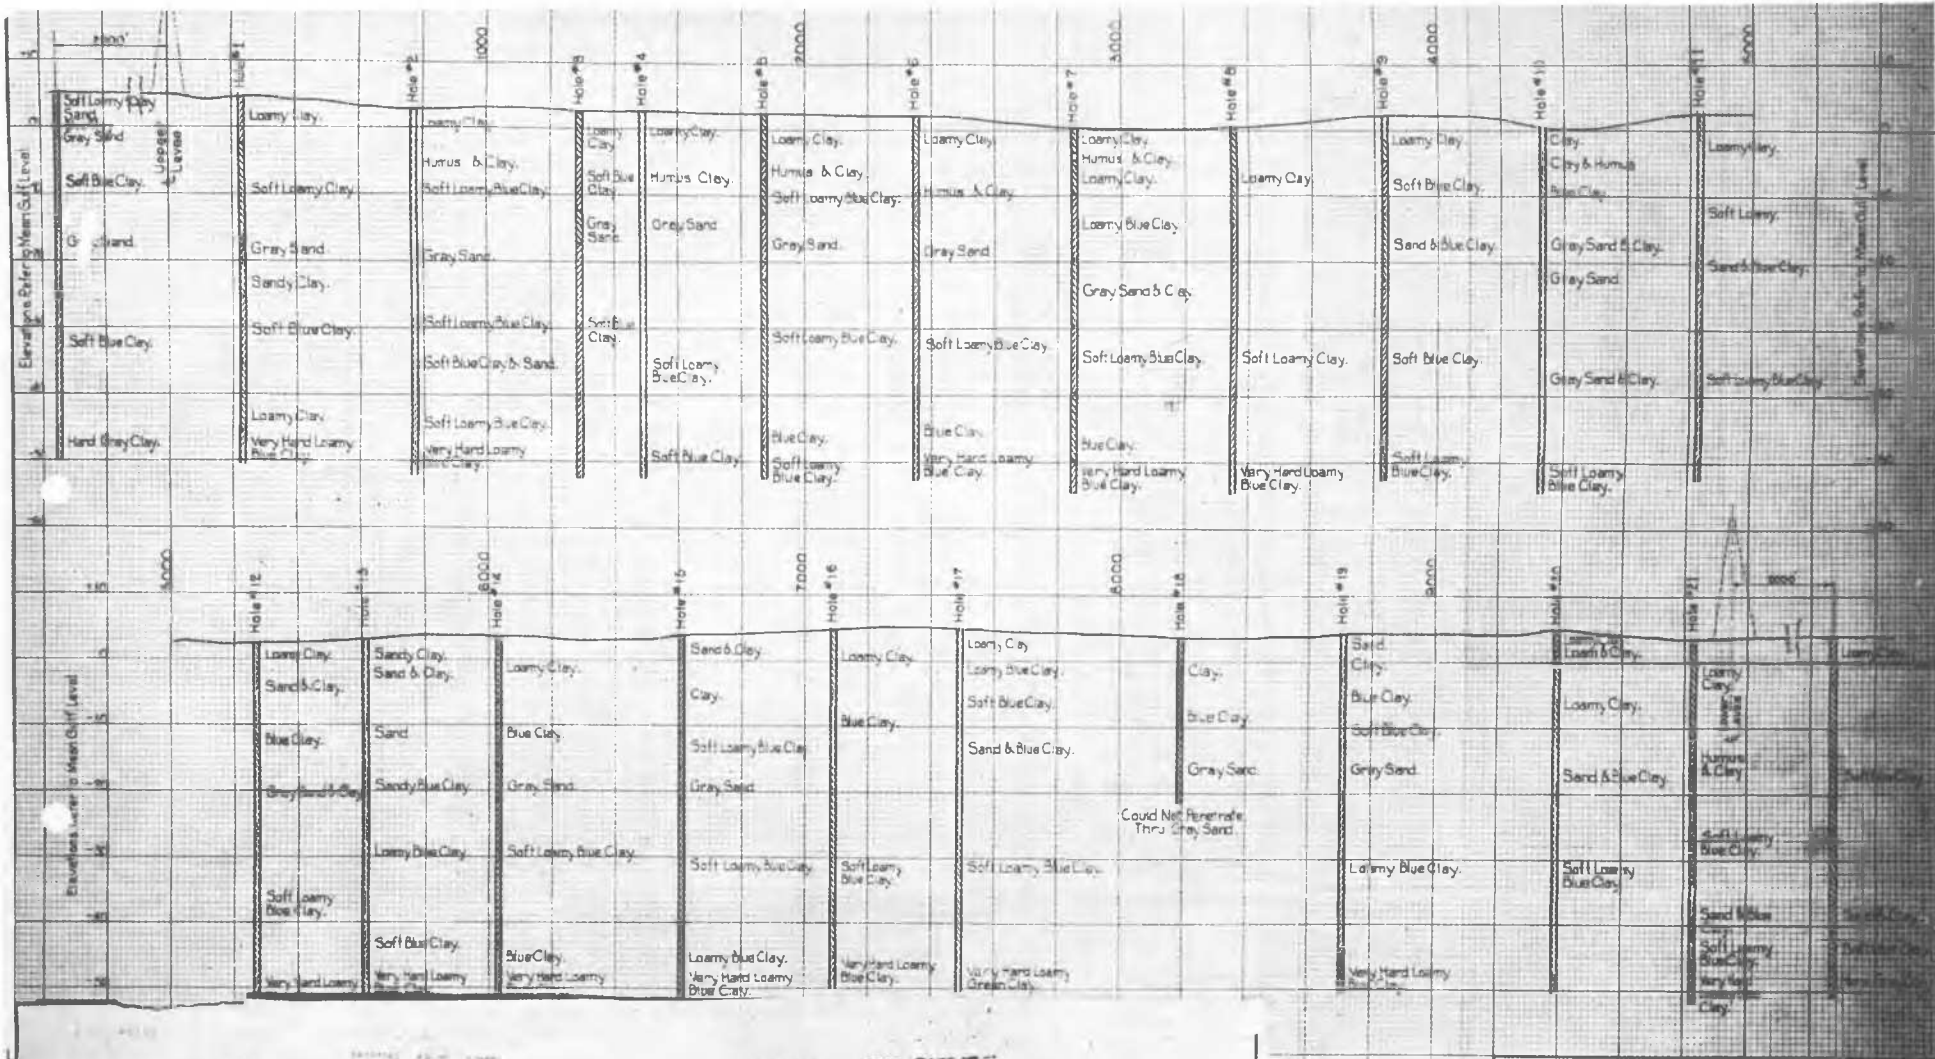 Elevations Refer to Mean Gulf Level
Upper
Levee
1000
2000
3000
4000
5000
Soft Loamy Clay
Sand.
Gray Sand
Soft Blue Clay.
Soft Blue Clay.
Hard Gray Clay.
Hole #1
Loamy Clay.
Soft Loamy Clay
Gray Sand.
Sandy Clay.
Soft Blue Clay.
Loamy Clay
Very Hard Loamy
Blue Clay.
Hole #2
Loamy Clay.
Humus & Clay.
Soft Loamy Blue Clay.
Gray Sand.
Soft Loamy Blue Clay
Soft Blue Clay & Sand.
Soft Loamy Blue Clay.
Very Hard Loamy
Hole #3
Loamy
Clay.
Soft Blue
Clay.
Gray
Sand.
Soft Blue
Clay.
Hole #4
Loamy Clay.
Humus Clay.
Gray Sand
Soft Loamy
Blue Clay.
Soft Blue Clay
Hole #5
Loamy Clay.
Humus & Clay.
Soft Loamy Blue Clay.
Gray Sand.
Soft Loamy Blue Clay.
Blue Clay.
Soft Loamy
Blue Clay.
Hole #6
Loamy Clay
Humus & Clay.
Gray Sand
Soft Loamy Blue Clay.
Blue Clay.
Very Hard Loamy
Blue Clay.
Hole #7
Loamy Clay.
Humus & Clay.
Loamy Clay.
Loamy Blue Clay.
Gray Sand & Clay
Soft Loamy Blue Clay.
Blue Clay.
Very Hard Loamy
Blue Clay.
Hole #8
Loamy Clay
Soft Loamy Clay.
Very Hard Loamy
Blue Clay.
Hole #9
Loamy Clay.
Soft Blue Clay.
Sand & Blue Clay.
Soft Blue Clay.
Soft Loamy
Blue Clay.
Hole #10
Clay.
Clay & Humus
Blue Clay.
Gray Sand & Clay.
Gray Sand
Gray Sand & Clay.
Soft Loamy
Blue Clay.
Hole #11
Loamy Clay.
Soft Loamy.
Sand & Blue Clay.
Soft Loamy Blue Clay
Elevations Refer to Mean Gulf Level
Elevations Refer to Mean Gulf Level
5000
6000
7000
8000
9000
Hole #12
Loamy Clay.
Sand & Clay.
Blue Clay.
Gray Sand & Clay
Soft Loamy
Blue Clay.
Very Hard Loamy
Hole #13
Sandy Clay.
Sand & Clay.
Sand
Sandy Blue Clay
Loamy Blue Clay.
Soft Blue Clay.
Very Hard Loamy
Hole #14
Loamy Clay.
Blue Clay.
Gray Sand.
Soft Loamy Blue Clay.
Blue Clay.
Very Hard Loamy
Hole #15
Sand & Clay.
Clay.
Soft Loamy Blue Clay
Gray Sand
Soft Loamy Blue Clay.
Loamy Blue Clay.
Very Hard Loamy
Blue Clay.
Hole #16
Loamy Clay.
Blue Clay.
Soft Loamy
Blue Clay.
Very Hard Loamy
Blue Clay.
Hole #17
Loamy Clay
Loamy Blue Clay.
Soft Blue Clay.
Sand & Blue Clay.
Soft Loamy Blue Clay.
Very Hard Loamy
Green Clay.
Hole #18
Clay.
Blue Clay.
Gray Sand.
Could Not Penetrate
Thru Gray Sand.
Hole #19
Sand.
Clay.
Blue Clay.
Soft Blue Clay.
Gray Sand.
Loamy Blue Clay.
Very Hard Loamy
Blue Clay.
Hole #20
Loam & Clay.
Loamy Clay.
Sand & Blue Clay.
Soft Loamy
Blue Clay
Hole #21
Loamy
Clay.
Lower
Levee
Humus
& Clay
Soft Loamy
Blue Clay.
Sand & Blue
Soft Loamy
Blue Clay.
Very Hard
Clay.